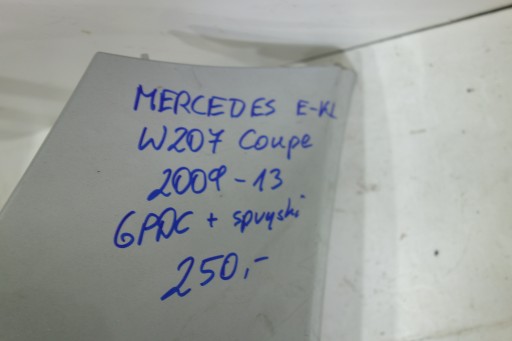 MERCEDES E-KL
W207 Coupe
2009-13
6PDC + spryski
250,-